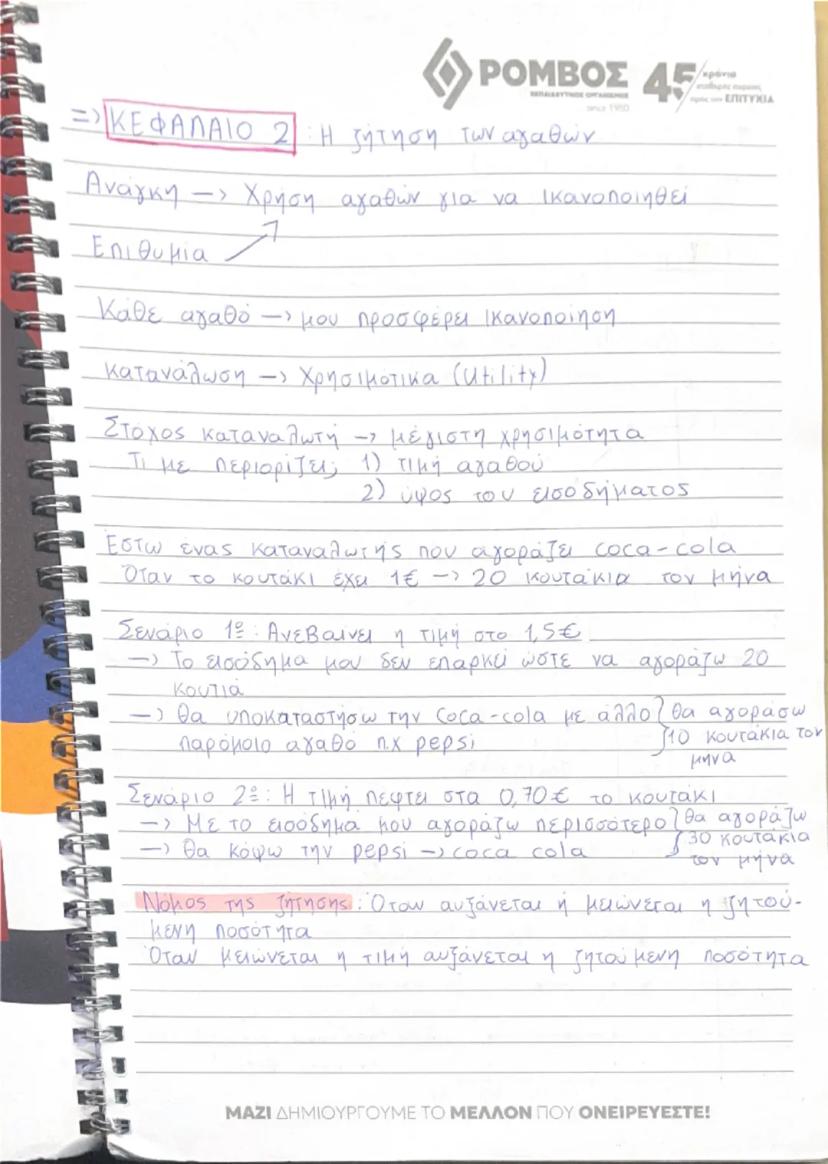 ΡΟΜΒΟΣ
ΕΚΠΑΙΔΕΥΤΙΚΟΣ ΟΡΓΑΝΙΣΜΟΣ
since 1980
45 χρόνια
προς την ΕΠΙΤΥΧΙΑ
=> ΚΕΦΑΛΑΙΟ 2 : Η ζήτηση των αγαθών
Ανάγκη —> Χρήση αγαθών για να ικανοποιηθεί
Επιθυμία
Κάθε αγαθό —> μου προσφέρει ικανοποίηση
Κατανάλωση —> Χρησιμοτικα (Utility)
Στόχος καταναλωτή —> μέγιστη χρησιμότητα
Τι με περιορίζει; 1) τιμή αγαθού
2) ύψος του εισοδήματος
Έστω ένας καταναλωτής που αγοράζει coca-cola
Όταν το κουτάκι έχει 1€ —> 20 κουτάκια τον μήνα
Σενάριο 1º: Ανεβαινει η τιμή στο 1,5€
—> Το εισόδημα μου δεν επαρκεί ώστε να αγοράζω 20
κουτιά
—> θα υποκαταστήσω την coca-cola με άλλο } θα αγοράσω
παρόμοιο αγαθό π.χ pepsi } 10 κουτάκια τον
μήνα
Σενάριο 2º: Η τιμή πέφτει στα 0,70€ το κουτάκι
—> Με το εισόδημα μου αγοράζω περισσότερο } θα αγοράζω
—> θα κόψω την pepsi —> coca cola } 30 κουτάκια
τον μήνα
Νόμος της ζήτησης: Όταν αυξάνεται ή μειώνεται η ζητού-
μενη ποσότητα
Όταν μειώνεται η τιμή αυξάνεται η ζητούμενη ποσότητα
ΜΑΖΙ ΔΗΜΙΟΥΡΓΟΥΜΕ ΤΟ ΜΕΛΛΟΝ ΠΟΥ ΟΝΕΙΡΕΥΕΣΤΕ!